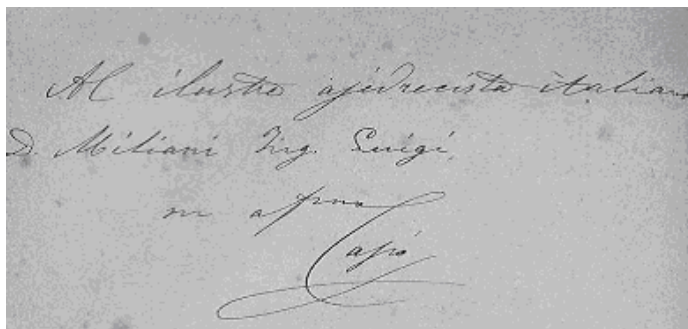 Al ilustre ajedrecista italiano
D. Miliani Ing. Luigi,
su afmo
Capó